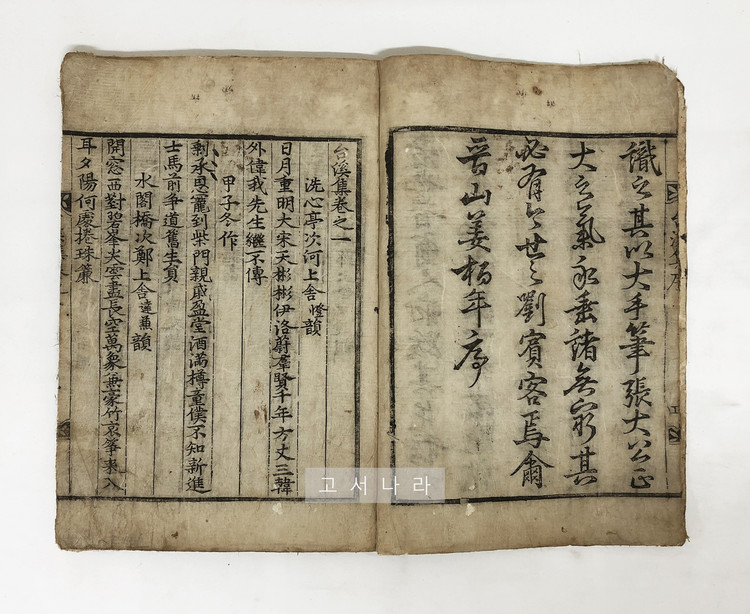 識之其以大手筆張大公正
大之氣永垂諸無窮其
必有今世之劉賓客焉爾
晉山姜栢年序
台溪集卷之一
洗心亭次河上舍憕韻
日月重明大宋天彬彬伊洛蔚羣賢千年方丈三韓
外偉我先生繼不傳
甲子冬作
剩承恩寵到柴門親戚盈堂酒滿樽童僕不知新進
士馬前爭道舊生員
水閣橋次鄭上舍韻
開窓西對碧峯尖雲盡長空萬象兼家竹哀箏來入
耳夕陽何處捲珠簾
고서나라